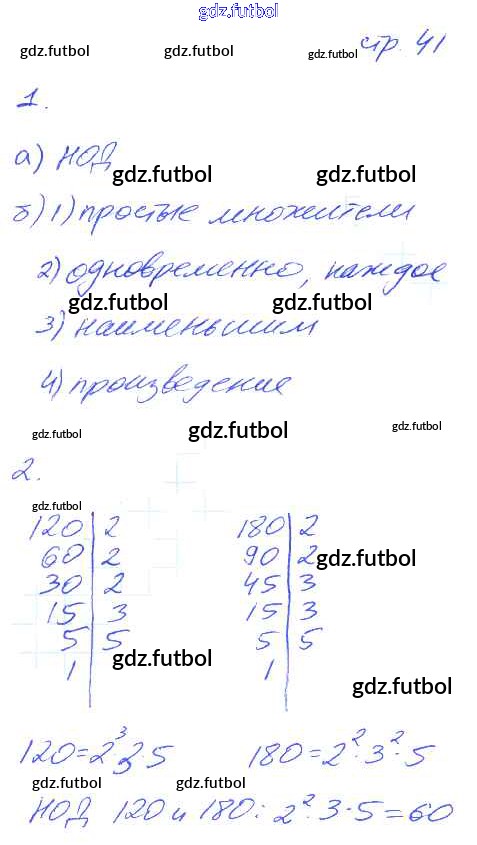 gdz.futbol
gdz.futbol gdz.futbol gdz.futbol стр. 41
1.
а) НОД
gdz.futbol gdz.futbol
б) 1) простые множители
2) одновременно, каждое
gdz.futbol gdz.futbol
3) наименьшим
4) произведение
gdz.futbol gdz.futbol gdz.futbol
2.
gdz.futbol
120|2 180|2
60|2 90|2 gdz.futbol
30|2 45|3
15|3 15|3
5|5 5|5
1| gdz.futbol 1|
gdz.futbol
120=2³·3·5 180=2²·3²·5
gdz.futbol gdz.futbol
НОД 120 и 180: 2²·3·5=60